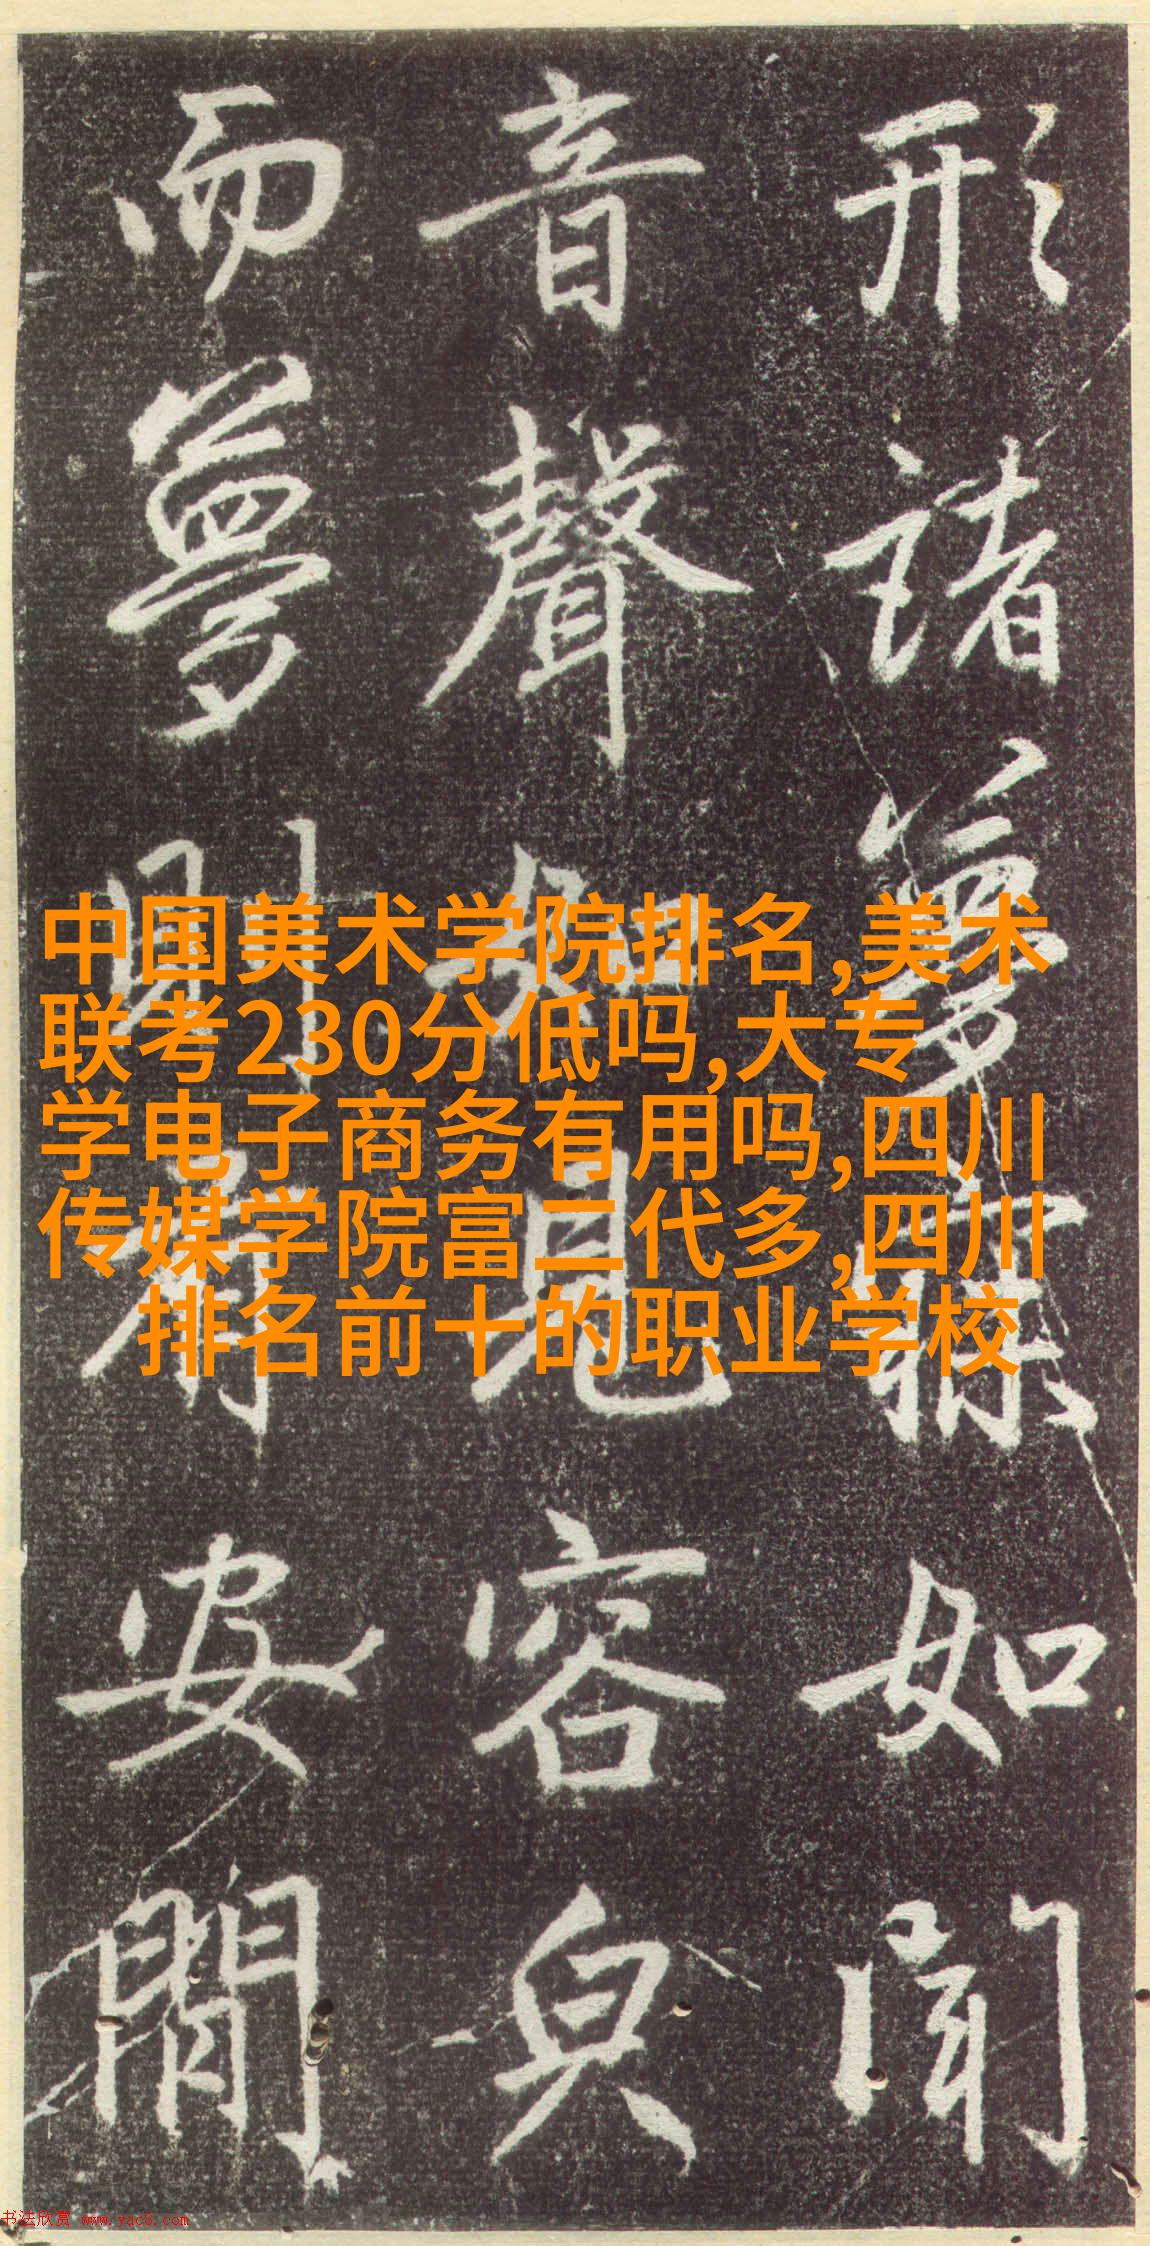 形諸夢寐如聞
音聲如見容皃
而夢則安閒
中国美术学院排名,美术
联考230分低吗,大专
学电子商务有用吗,四川
传媒学院富二代多,四川
排名前十的职业学校
书法欣赏 www.yac8.com